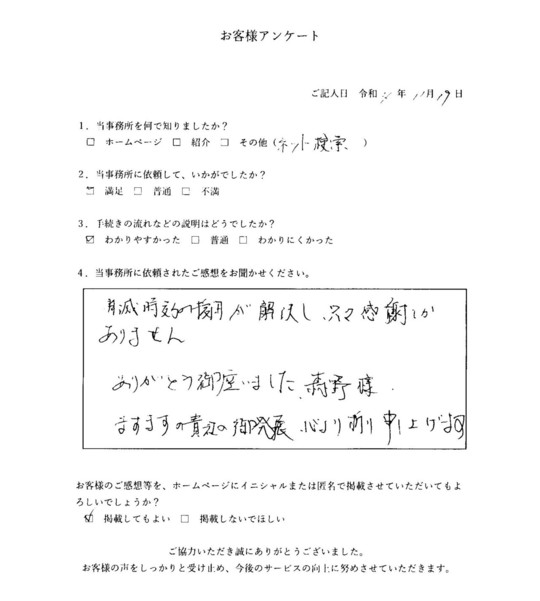 お客様アンケート
ご記入日 令和 年 11月19日
1．当事務所を何で知りましたか？
□ ホームページ □ 紹介 □ その他（ネット検索 ）
2．当事務所に依頼して、いかがでしたか？
□ 満足 □ 普通 □ 不満
3．手続きの流れなどの説明はどうでしたか？
☑ わかりやすかった □ 普通 □ わかりにくかった
4．当事務所に依頼されたご感想をお聞かせください。
消滅時効の援用が解決し、只々感謝しか
ありません
ありがとう御座いました、 野様．
ますますの貴 の御発展、心より祈り申し上げます
お客様のご感想等を、ホームページにイニシャルまたは匿名で掲載させていただいてもよ
ろしいでしょうか？
☑ 掲載してもよい □ 掲載しないでほしい
ご協力いただき誠にありがとうございました。
お客様の声をしっかりと受け止め、今後のサービスの向上に努めさせていただきます。